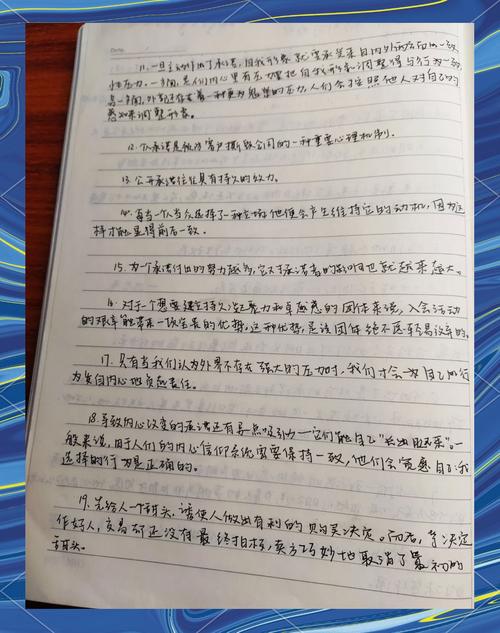 11. 一旦主动作出了承诺，自我形象就要承受来自内外两方面的一致
性压力。一方面，是人们内心里有压力要把自我形象调整得与行为一致，
另一方面，外部还存在着一种更为鬼祟的压力，人们会按照他人对自己的
感知来调整形象。
12. 个人承诺是防止客户撕毁合同的一种重要心理机制。
13. 公开承诺往往具有持久的效力。
14. 每当一个人当众选择了一种立场，他便会产生维持它的动机，因为这
样才能显得前后一致。
15. 为一个承诺付出的努力越多，它对承诺者的影响也就越来越大。
16. 对于一个想要建立持久凝聚力和卓越感的团体来说，入会活动
的艰辛能带来一项宝贵的优势，这种优势，是该团体绝不愿轻易放弃的。
17. 只有当我们认为外界不存在强大的压力时，我们才会为自己的行
为发自内心地负起责任。
18. 导致内心改变的承诺还有一点吸引力——它们能自己"长出腿来"。一
般来说，由于人们的内心信仰系统需要保持一致，他们会宽慰自己：我
选择的行为是正确的。
19. 先给人一个甜头，诱使人做出有利的购买决定。而后，等决定
作好了，交易却还没有最终拍板，卖方巧妙地取消了最初的
甜头。